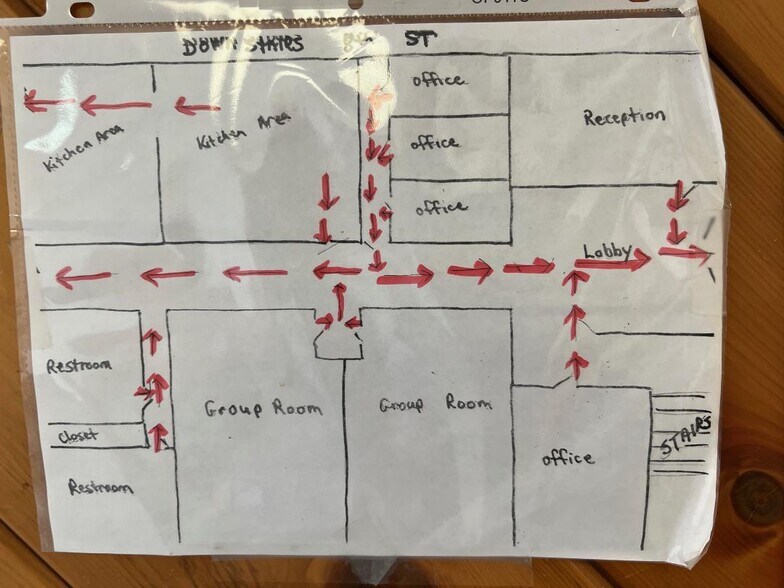 DOWN STAIRS 84 ST
office
Kitchen Area
Kitchen Area
office
Reception
office
Lobby
Restroom
Group Room
Group Room
Closet
office
STAIRS
Restroom